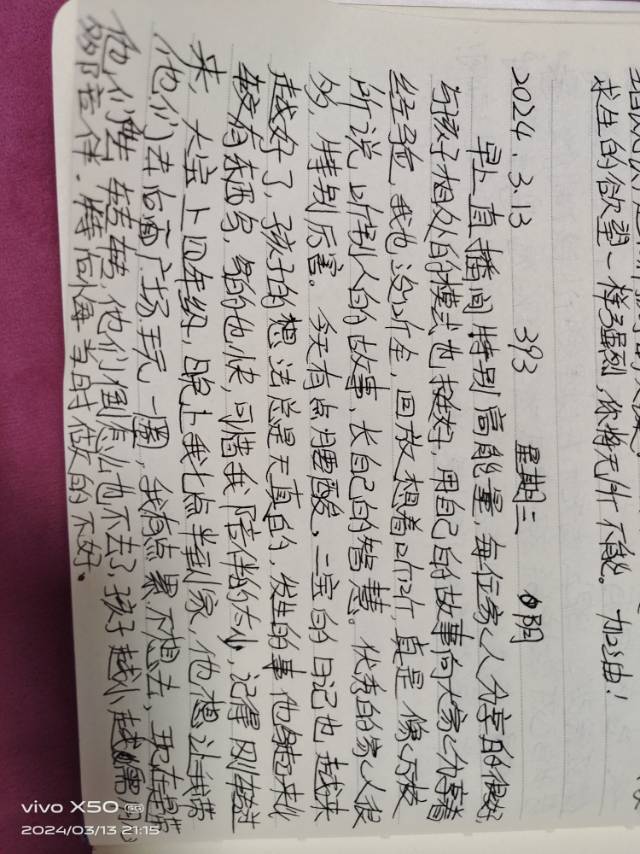 求生的欲望一样强烈，你将无所不能。加油！
2024.3.13 393 星期三 阴
早上直播间特别高能量，每位家人分享的很好，
与孩子相处的模式也挺好，用自己的故事向大家分享着
经验，我也没听全，回放想着听听，真是像万校
所说，听别人的故事，长自己的智慧。优秀的家人很
多，特别厉害。今天有点腰酸，二宝的日记也越来
越好了，孩子的想法总是天真的，发生的事他
较有东西写，写的也快，可惜我陪伴的太少，记得刚
来，大宝上四年级，晚上我七点半到家，他想让我带
他们去后面广场玩一圈，我有点累不想去，现在
他们去转转，他们倒怎么也不去了，孩子越小越需
要陪伴。特后悔当时做的不好。
vivo X50 5G
2024/03/13 21:15